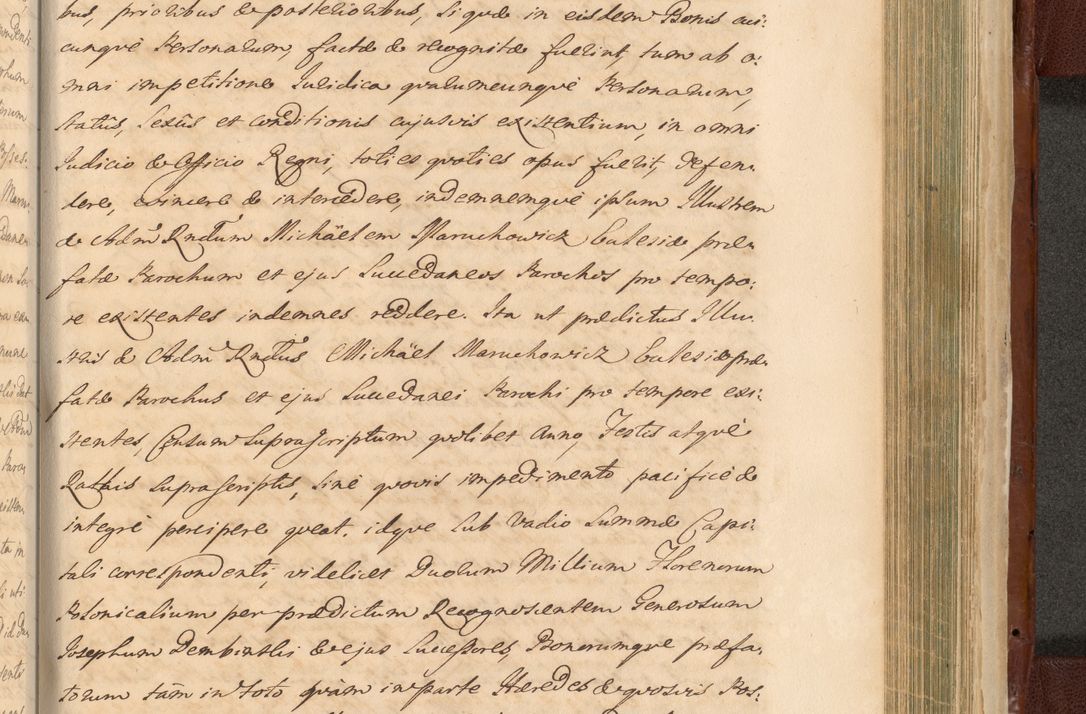 bus, prioribus & posterioribus, si quæ in eisdem Bonis cui:
cunquè Personarum, factæ & recognitæ fuerint, tum ab o:
mni impetitione Juridica quarumcunquè Personarum,
statûs, sexûs et conditionis cujusvis existentium, in omni
Judicio & Officio Regni, toties quoties opus fuerit, defen:
dere, evincere & intercedere, indemnemquè ipsum Illustrem
& Adm̃ Rndum Michäelem Maruchowicz Ecclesiæ præ:
fatæ Parochum et ejus Succedaneos Parochos pro tempo:
re existentes indemnes reddere. Ita ut prædictus Illu:
stris & Adm̃ Rndus Michäel Maruchowicz Ecclesiæ præ:
fatæ Parochus et ejus Succedanei Parochi pro tempore exi:
stentes, Censum suprascriptum quolibet Anno, Festis atquè
Rathis suprascriptis, sinè quovis impedimento pacificè &
integrè percipere queat. idque sub Vadio Summæ Capi:
tali correspondenti, videlicet Duorum Millium Florenorum
Polonicalium per prædictum Recognoscentem Generosum
Josephum Dembinski & ejus Successores, Bonorumque præfa:
torum tàm in toto quàm in parte Hæredes & quosvis Pos: